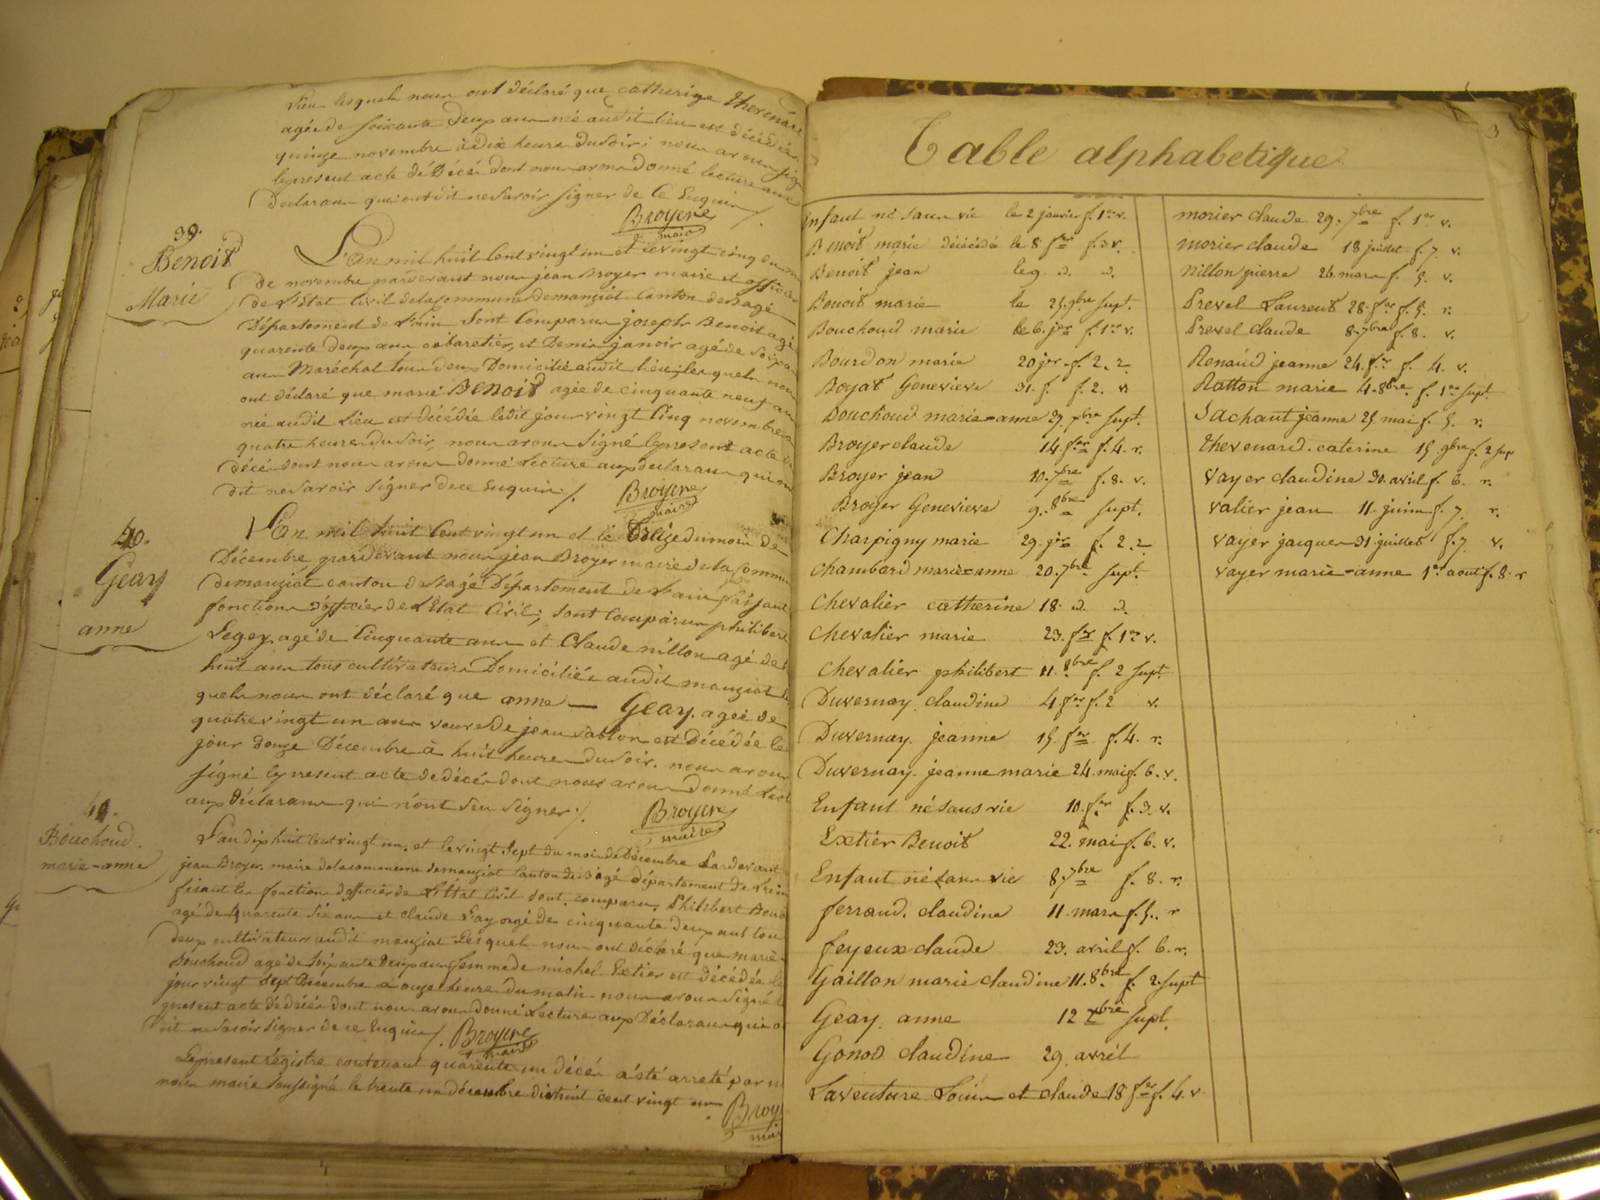 lieu lesquels nous ont déclaré que catherine thevenard
agée de soixante deux ans née audit lieu est décédée
quinze novembre à dix heures du soir; nous avons sig
le present acte de Décès dont nous avons donné lecture aux
Declarans qui ont dit ne savoir signer de ce Enquis /.
Broyer
maire
39.
Benoit
Marie
L'an mil huit cent vingt un et le vingt cinq du
de novembre pardevant nous jean Broyer maire et officier
de l'Etat Civil de la commune de manziat Canton de Bagé
Département de l'ain sont Comparus joseph Benoit agé
quarente deux ans cabaretier, et Denis janoir agé de
ans Maréchal tous deux Domiciliés audit lieu; lesquels nous
ont déclaré que marie Benoit agée de cinquante neuf ans
née audit Lieu est décédée ledit jour vingt cinq novembre
quatre heures du soir, nous avons signé le present acte de
décés dont nous avons donné Lecture aux declarans qui ont
dit ne savoir signer de ce Enquis /.
Broyer
maire
40.
Geay
anne
L'An mil huit Cent vingt un et le treize du mois de
Décembre pardevant nous jean Broyer maire de la Commune
de manziat canton de Bagé Département de l'ain faisant
fonctions d'officier de l'Etat Civil; sont Comparus philibert
Leger agé de Cinquante ans et Claude nillon agé de
huit ans tous cultivateurs Domiciliés audit manziat
quels nous ont déclaré que anne — Geay. agée de
quatre vingt un ans veuve de jean sablon est Décédée le
jour douze Décembre à huit heures du soir. nous avons
signé le present acte de décés dont nous avons donné Lect
aux Déclarans qui n'ont seu signer /.
Broyer
maire
41.
Bouchoud.
marie-anne
L'an dix huit cent vingt un. et le vingt sept du mois de Décembre Pardevant
jean Broyer. maire de la commune de manziat Canton de Bagé département de l'ain
fisant les fonctions d'officier de L'Etat Civil sont. comparu. Philibert
agé de quarente six ans et claude fay agé de cinquante deux ans tous
deux cultivateurs audit manziat Lesquels nous ont déclaré que marie
Bouchoud agé de soixante deux ans femme de michel Extier est décédée le
jour vingt sept Décembre a onze heures du matin nous avons signé le
present acte de décés dont nous avons donné Lecture aux Déclarans qui
dit ne savoir signer de ce Enquis /.
Broyer
maire
Le present registre contenant quarente un décés a été arreté par n
nous maire soussigné le trente un décembre dix huit cent vingt un
Broy
mai
3
Table alphabetique
Enfant né sans vie le 2 janvier f. 1er v.
Benoit marie décédée le 8 fer f. 3 v.
Benoit jean le 9. d. d.
Benoit marie le 25. 9bre supt.
Bouchoud marie le 6. jer f. 1er v.
Bourdon marie 20 jer. f. 2. r.
Boyat Genevieve 31. f. f. 2. v
Bouchoud marie-anne 27. xbre supt.
Broyer claude 14. fer f. 4. r.
Broyer jean 10. 7bre f. 8. v.
Broyer Genevieve 9. 8bre supt.
Charpigny marie 29. jer f. 2. r
chambard marie-anne 20. 7bre supt.
Chevalier catherine 18. d. d.
Chevalier marie 23. fer f. 1er v.
Chevalier philibert 11. 8bre f. 2 supt.
Duvernay. claudine 4 fer f. 2 v.
Duvernay. jeanne 15. fer f. 4. r.
Duvernay. jeanne marie 24. mai f. 6. v.
Enfant né sans vie 10. fer f. 3. v.
Extier Benoit 22. mai f. 6. v.
Enfant né sans vie 8. 7bre f. 8. r.
ferraud. claudine 11. mars f. 5. r
feyeux claude 23. avril f. 6. r.
Gaillon marie claudine 11. 8bre f. 2. supt
Geay. anne 12 xbre supt.
Gonod claudine 29. avril
Laventure Louis et claude 18 fer f. 4. v
morier claude 29. 7bre f. 1er v.
morier claude 18 juillet f. 7 v.
Nillon pierre 26. mars f. 5. v.
Prevel Laurent 28. fer f. 5. r.
Prevel claude 8. 7bre f. 8. v.
Renaud jeanne 24. fer f. 4. v.
Ratton marie 4. 8bre. f. 1er supt.
Sachaut jeanne 25 mai f. 5. r.
thevenard. caterine 15 9bre f. 2 sup
Vayer claudine 30. avril f. 6. r.
Valier jean 11. juin f. 7. r.
Vayer jacques 31 juillet f. 7 v.
Vayer marie-anne 1er aout f. 8. r